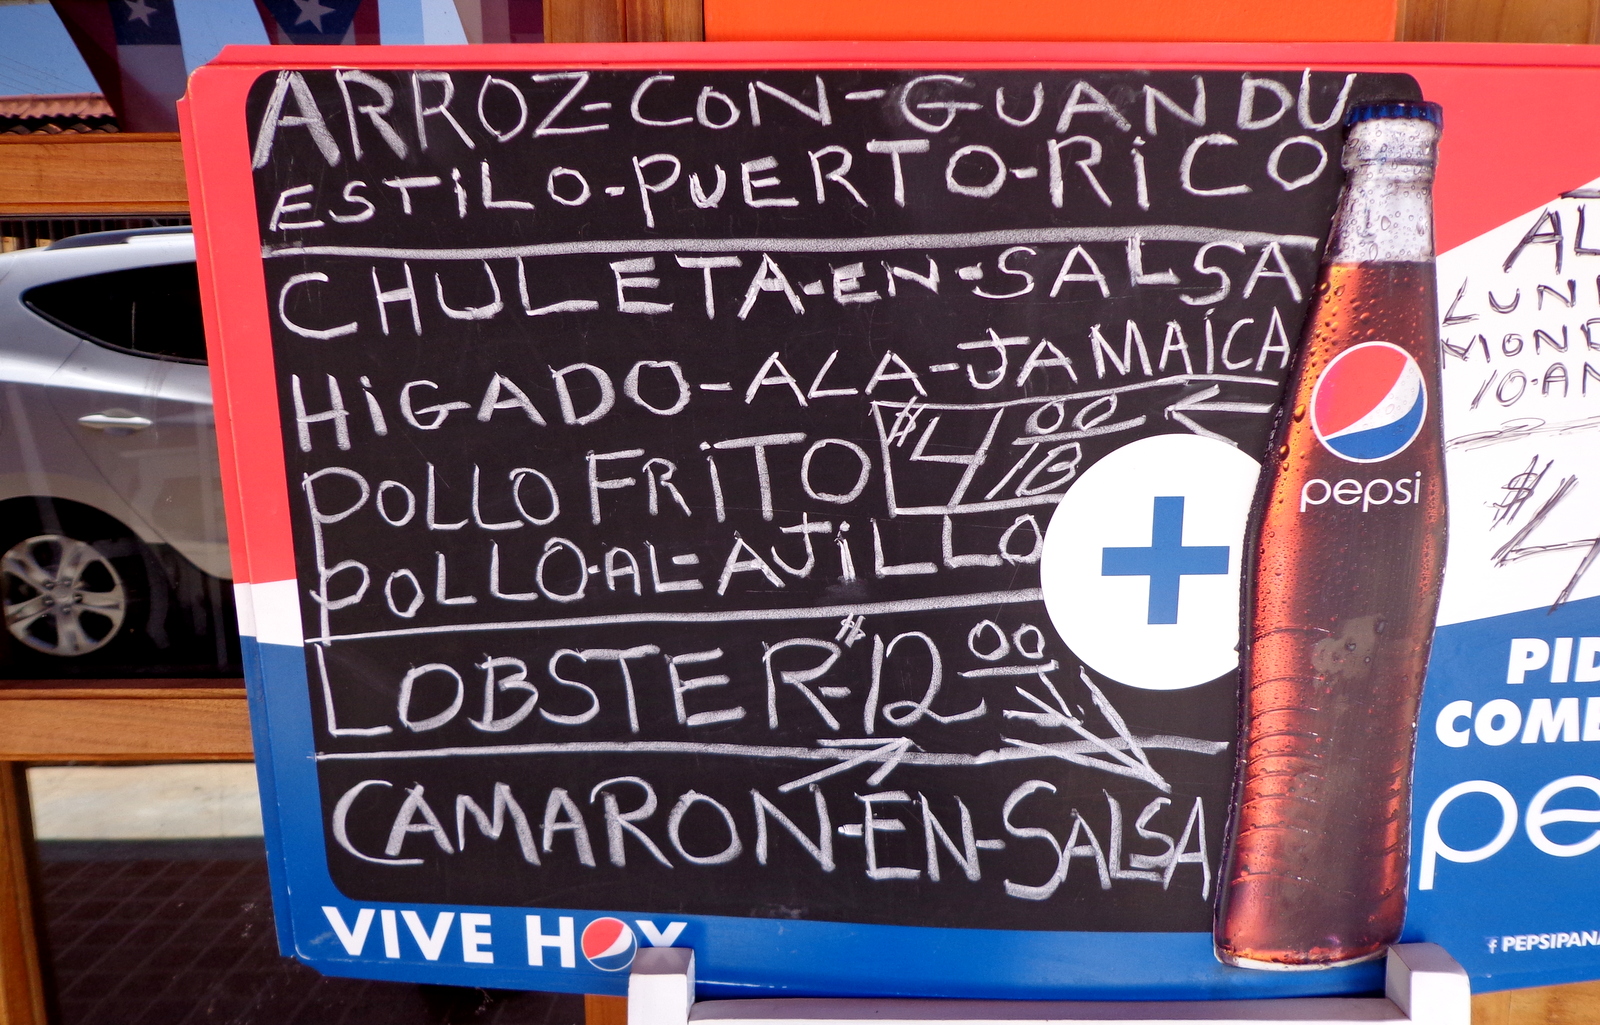 ARROZ-CON-GUANDU
ESTILO-PUERTO-RICO
CHULETA-EN-SALSA
HiGADO-ALA-JAMAÍCA
POLLO FRITO $4/00
POLLO-AL-AJiLLO
LOBSTER-$12 00
CAMARON-EN-SALSA
VIVE HOY
pepsi
+
AL
LUN
MOND
10-AM
$4
PID
COME
pe
f PEPSIPANA